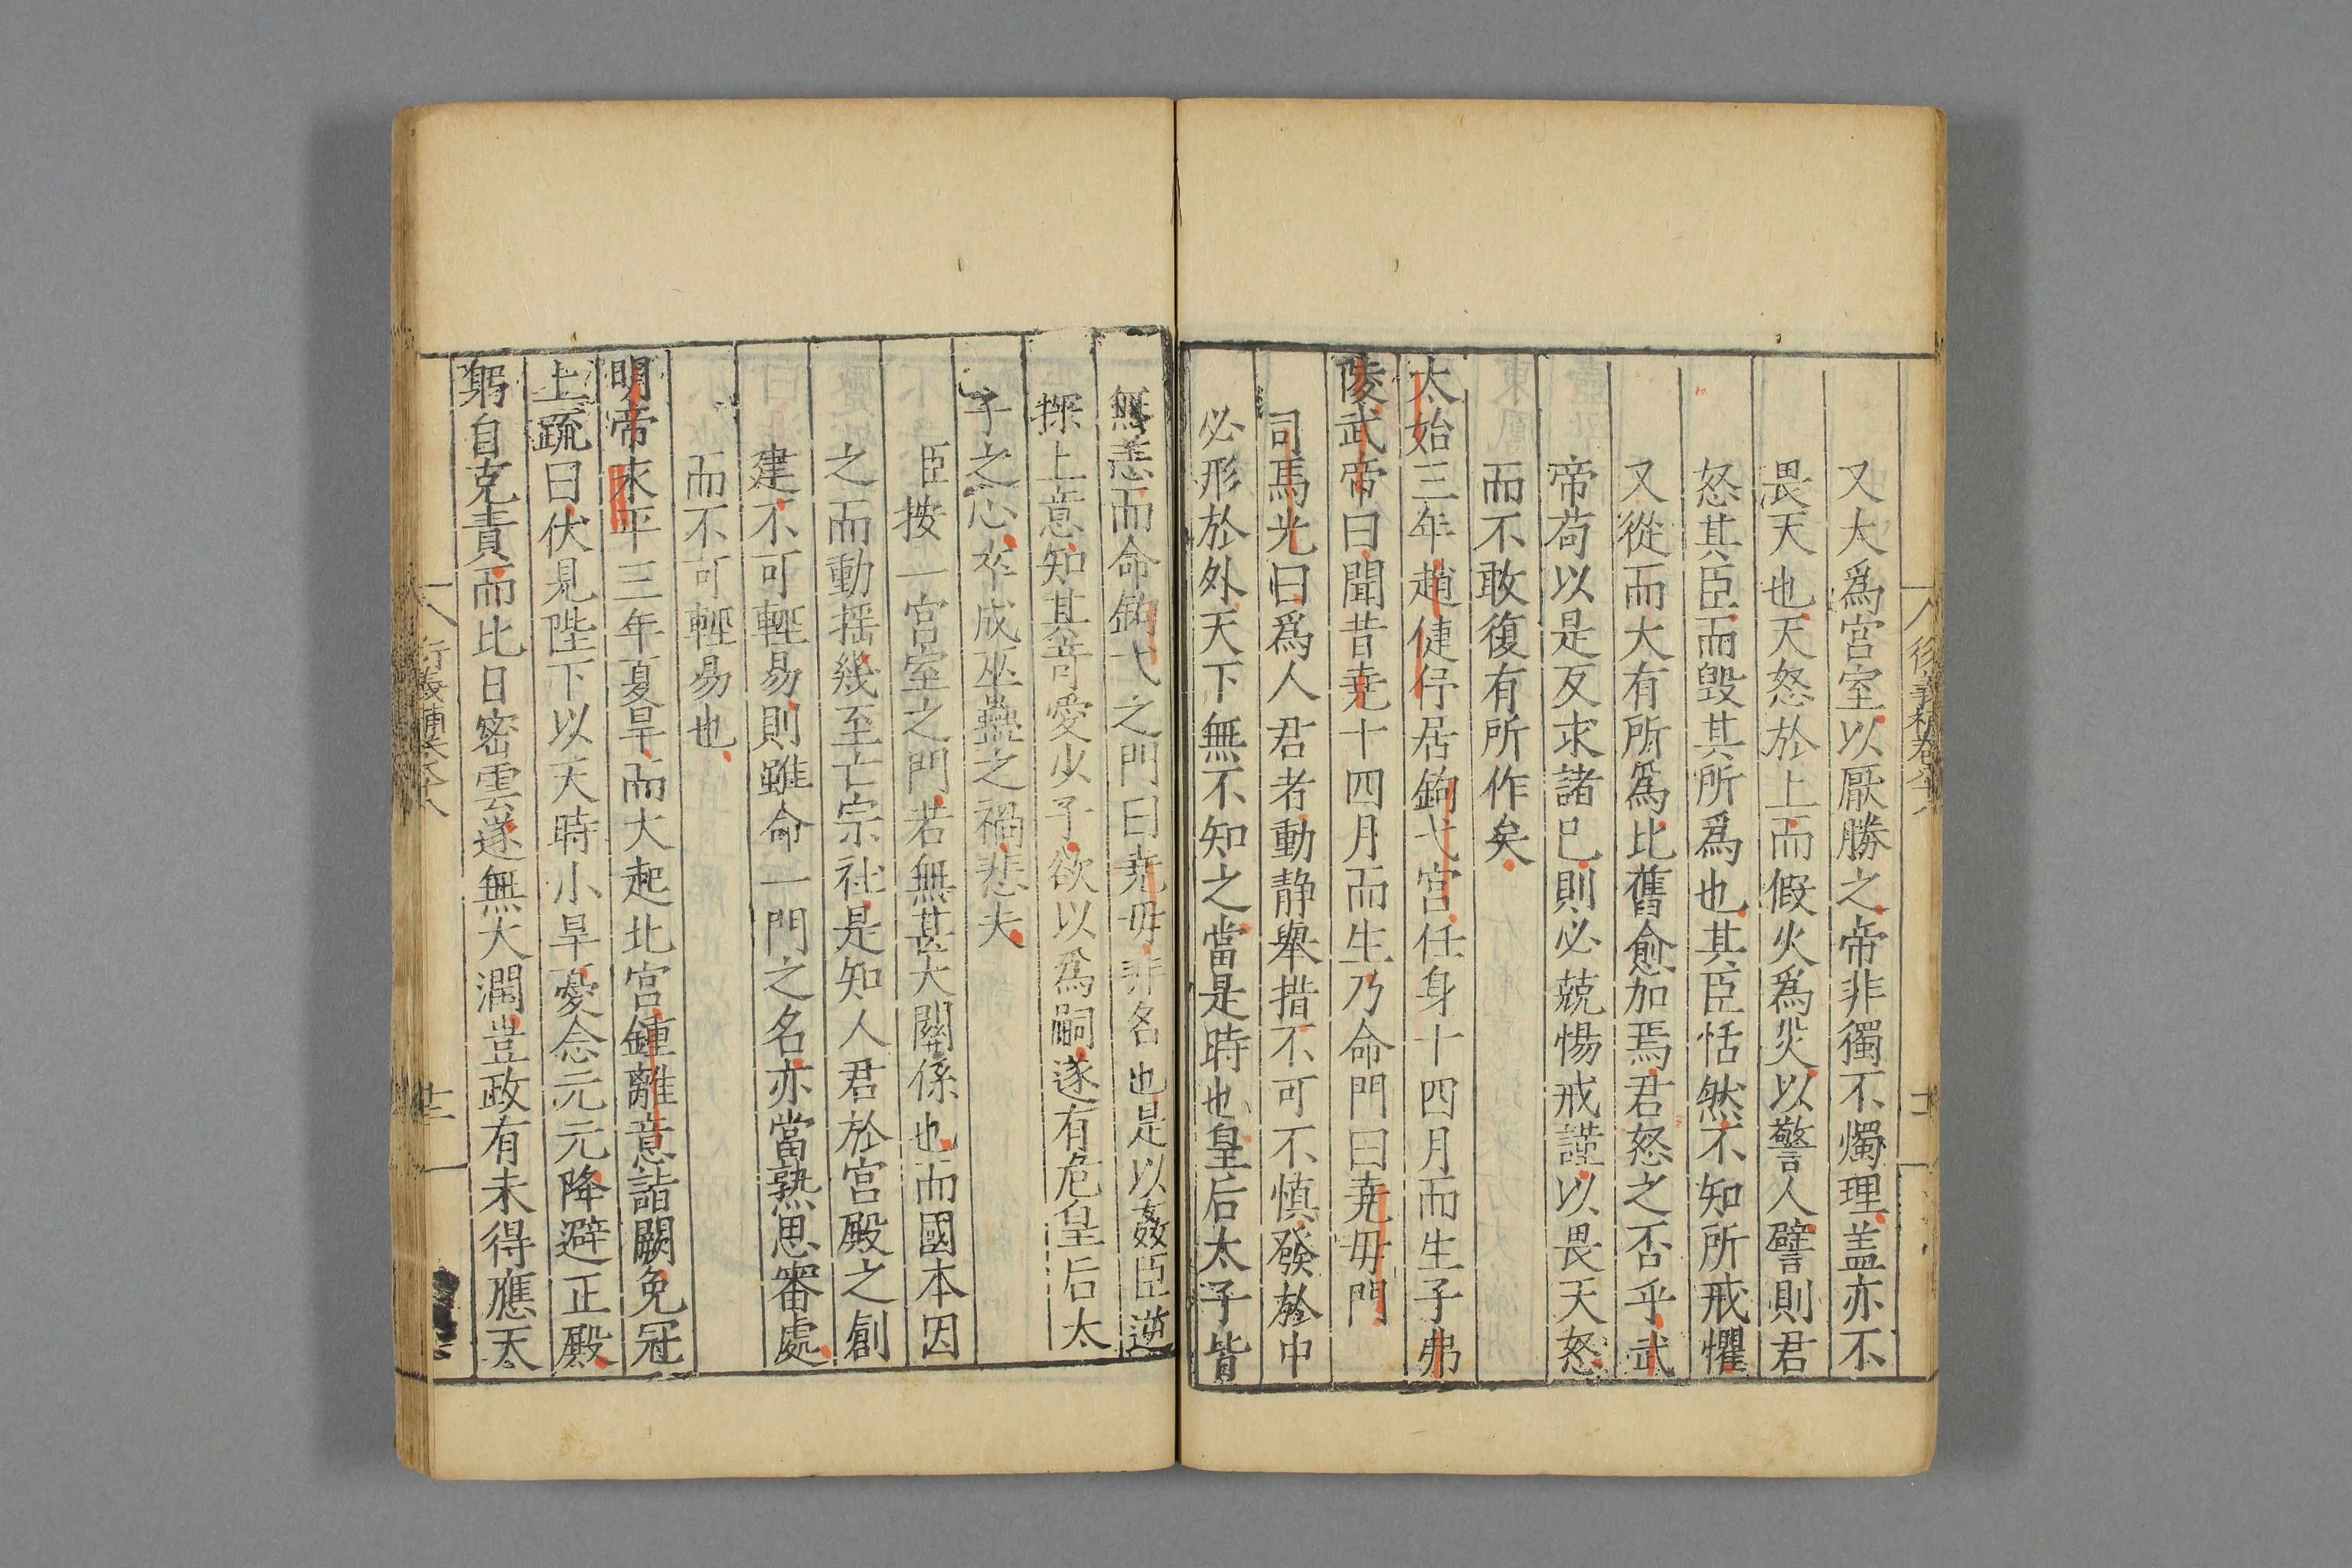 又大爲宮室以厭勝之帝非獨不燭理盖亦不
畏天也天怒於上而假火爲災以警人譬則君
怒其臣而毀其所爲也其臣恬然不知所戒懼
又從而大有所爲比舊愈加焉君怒之否乎武
帝苟以是反求諸己則必兢惕戒謹以畏天怒
而不敢復有所作矣
太始三年趙倢伃居鉤弋宮任身十四月而生子弗
陵武帝曰聞昔堯十四月而生乃命門曰堯毋門
司馬光曰爲人君者動静舉措不可不慎發於中
必形於外天下無不知之當是時也皇后太子皆
無恙而命鉤弋之門曰堯毋非名也是以姦臣逆
探上意知其奇愛少子欲以爲嗣遂有危皇后太
子之心卒成巫蠱之禍悲夫
臣按一宮室之門若無甚大關係也而國本因
之而動揺幾至亡宗社是知人君於宮殿之創
建不可輕易則雖命一門之名亦當熟思審處
而不可輕易也
明帝永平三年夏旱而大起北宮鍾離意詣闕免冠
上疏曰伏見陛下以天時小旱憂念元元降避正殿
躬自克責而比日密雲遂無大潤豈政有未得應天